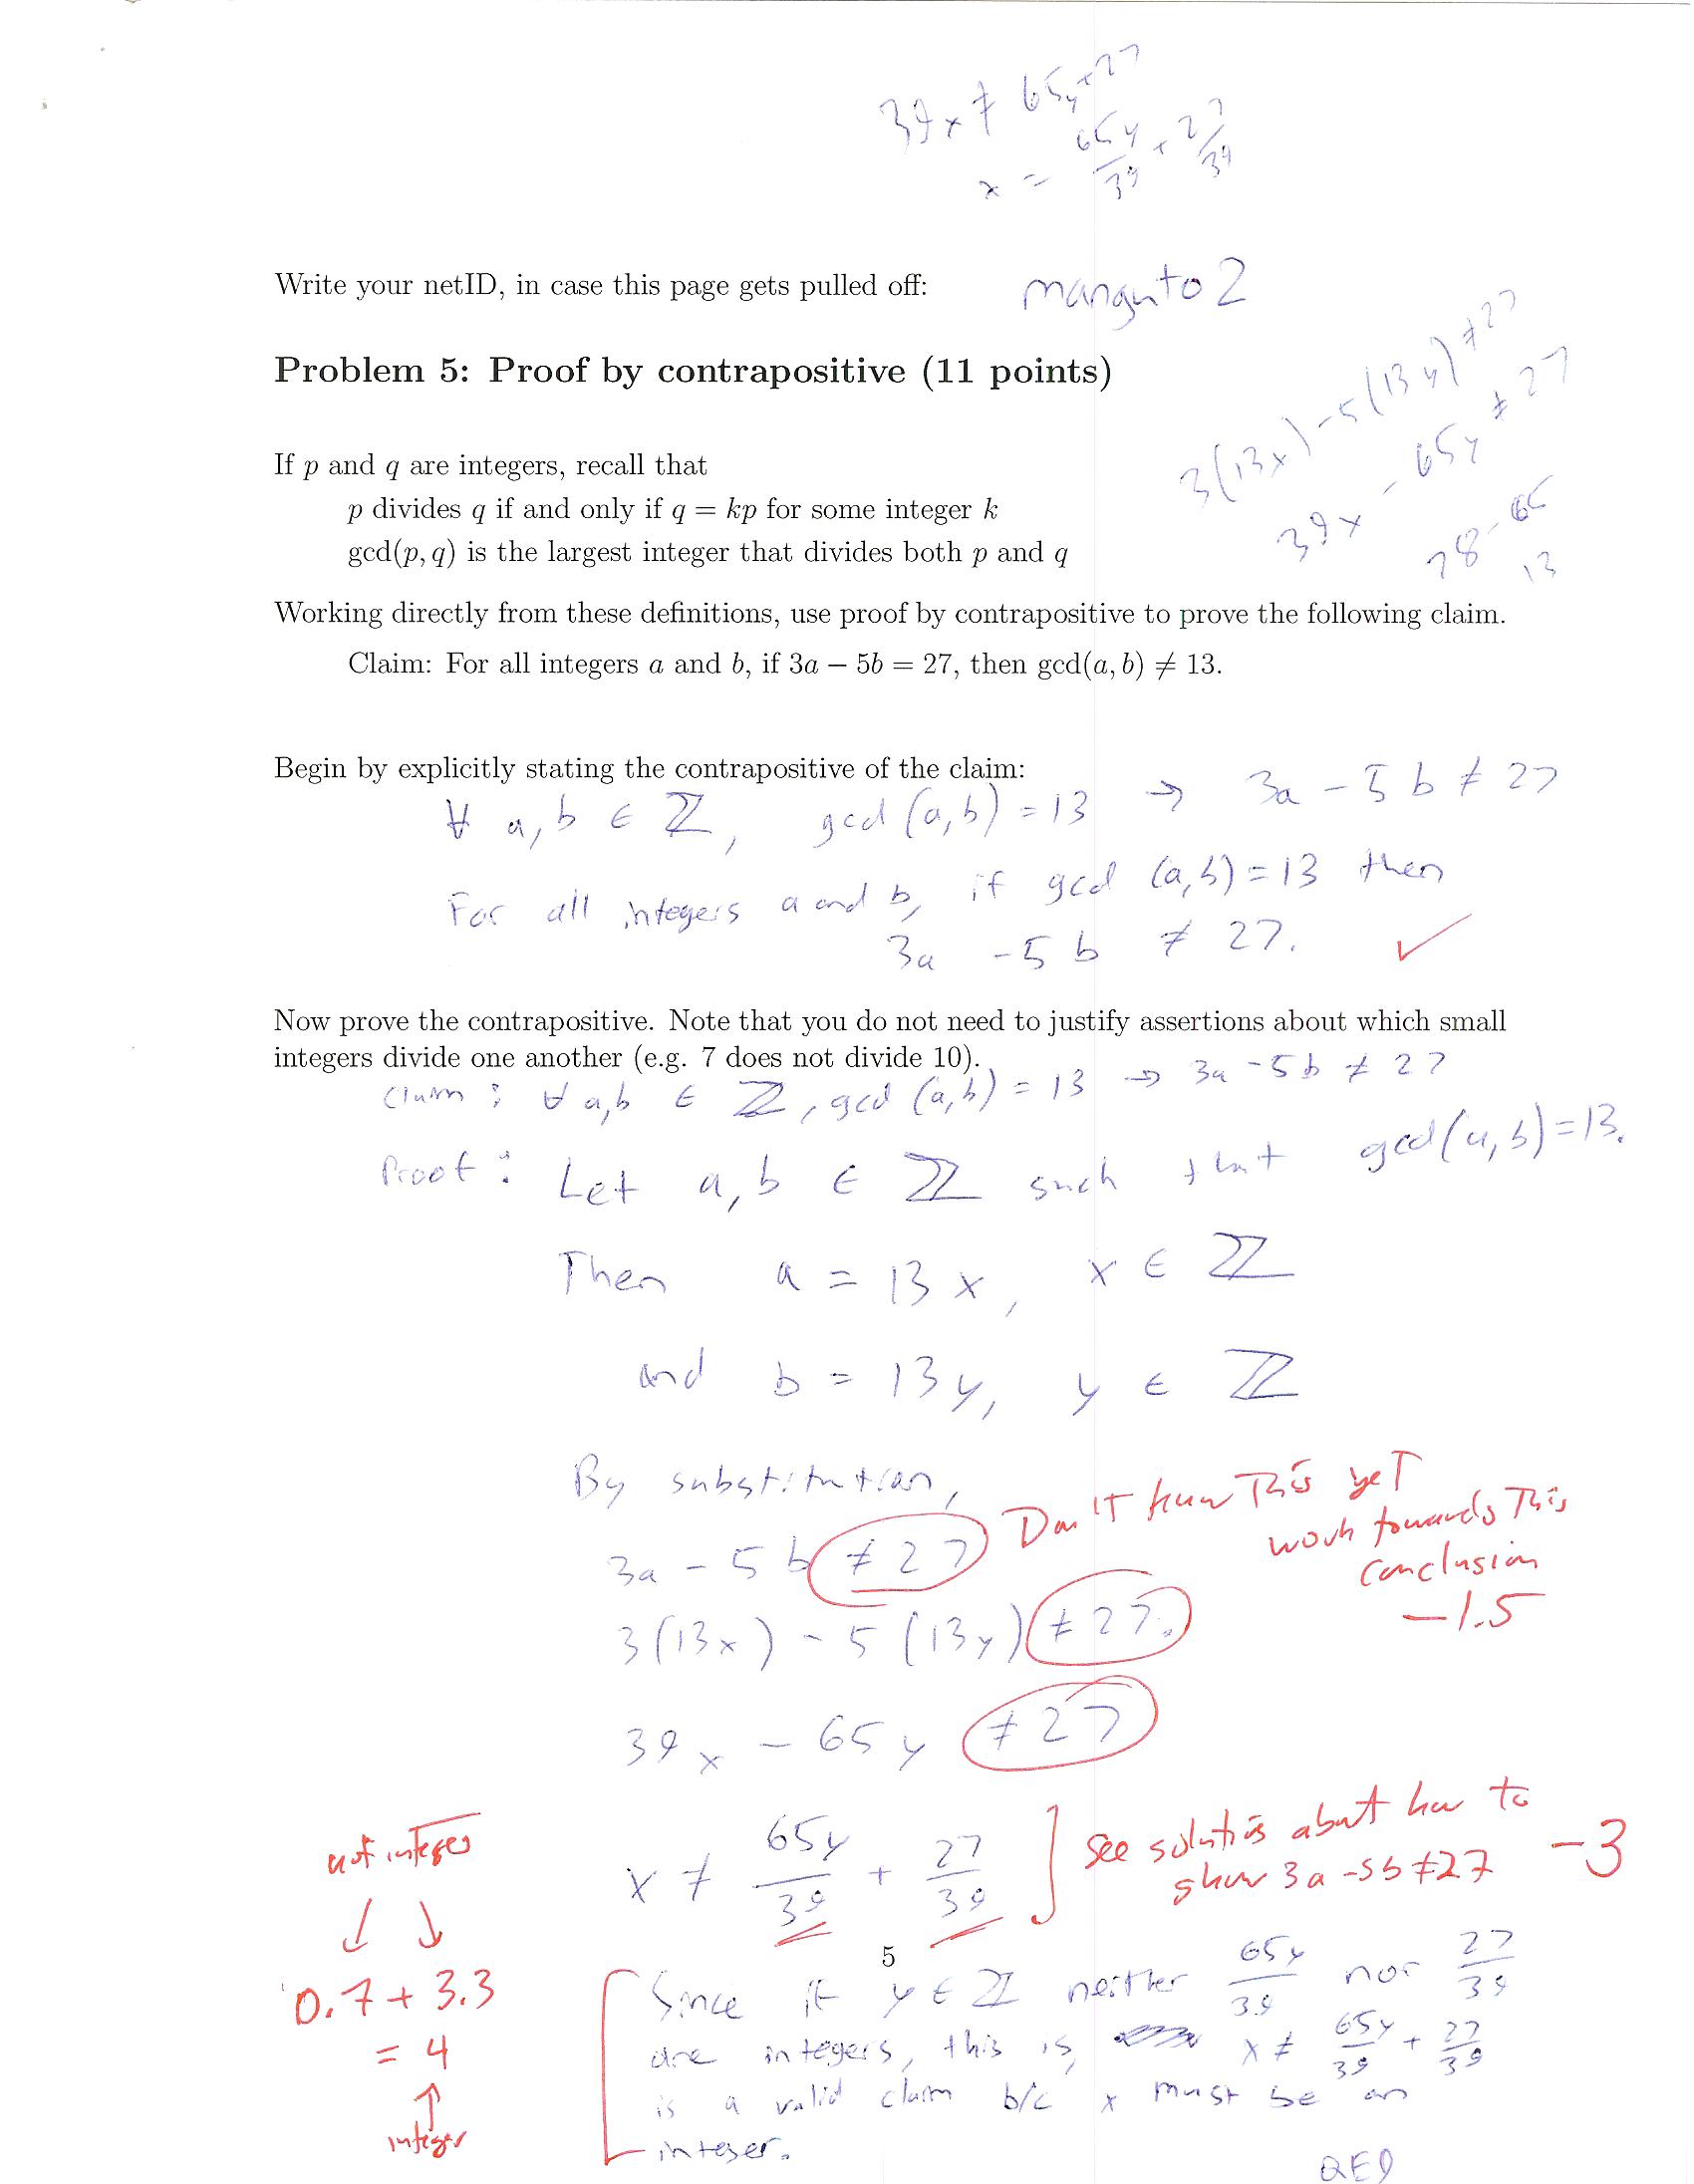 39x ≠ 65y + 27
x = 65y/39 + 27/39
Write your netID, in case this page gets pulled off: manguto2
Problem 5: Proof by contrapositive (11 points)
3(13x) - 5(13y) ≠ 27
39x - 65y ≠ 27
78 - 65
13
If p and q are integers, recall that
p divides q if and only if q = kp for some integer k
gcd(p, q) is the largest integer that divides both p and q
Working directly from these definitions, use proof by contrapositive to prove the following claim.
Claim: For all integers a and b, if 3a − 5b = 27, then gcd(a, b) ≠ 13.
Begin by explicitly stating the contrapositive of the claim:
∀ a, b ∈ ℤ, gcd(a, b) = 13 → 3a - 5b ≠ 27
For all integers a and b, if gcd (a, b) = 13 then
3a - 5b ≠ 27. ✓
Now prove the contrapositive. Note that you do not need to justify assertions about which small
integers divide one another (e.g. 7 does not divide 10).
Claim: ∀ a,b ∈ ℤ, gcd (a, b) = 13 → 3a - 5b ≠ 27
Proof: Let a, b ∈ ℤ such that gcd(a, b) = 13.
Then a = 13x, x ∈ ℤ
and b = 13y, y ∈ ℤ
By substitution,
3a - 5b ≠ 27
Don't know This yet
work towards This
conclusion
-1.5
3(13x) - 5(13y) ≠ 27.
39x - 65y ≠ 27
x ≠ 65y/39 + 27/39
See solutions about how to
show 3a - 5b ≠ 27 -3
not integer
↓ ↓
0.7 + 3.3
= 4
↑
integer
5
Since if y ∈ ℤ neither 65y/39 nor 27/39
are integers, this is, x ≠ 65y/39 + 27/39
is a valid claim b/c x must be an
integer.
QED